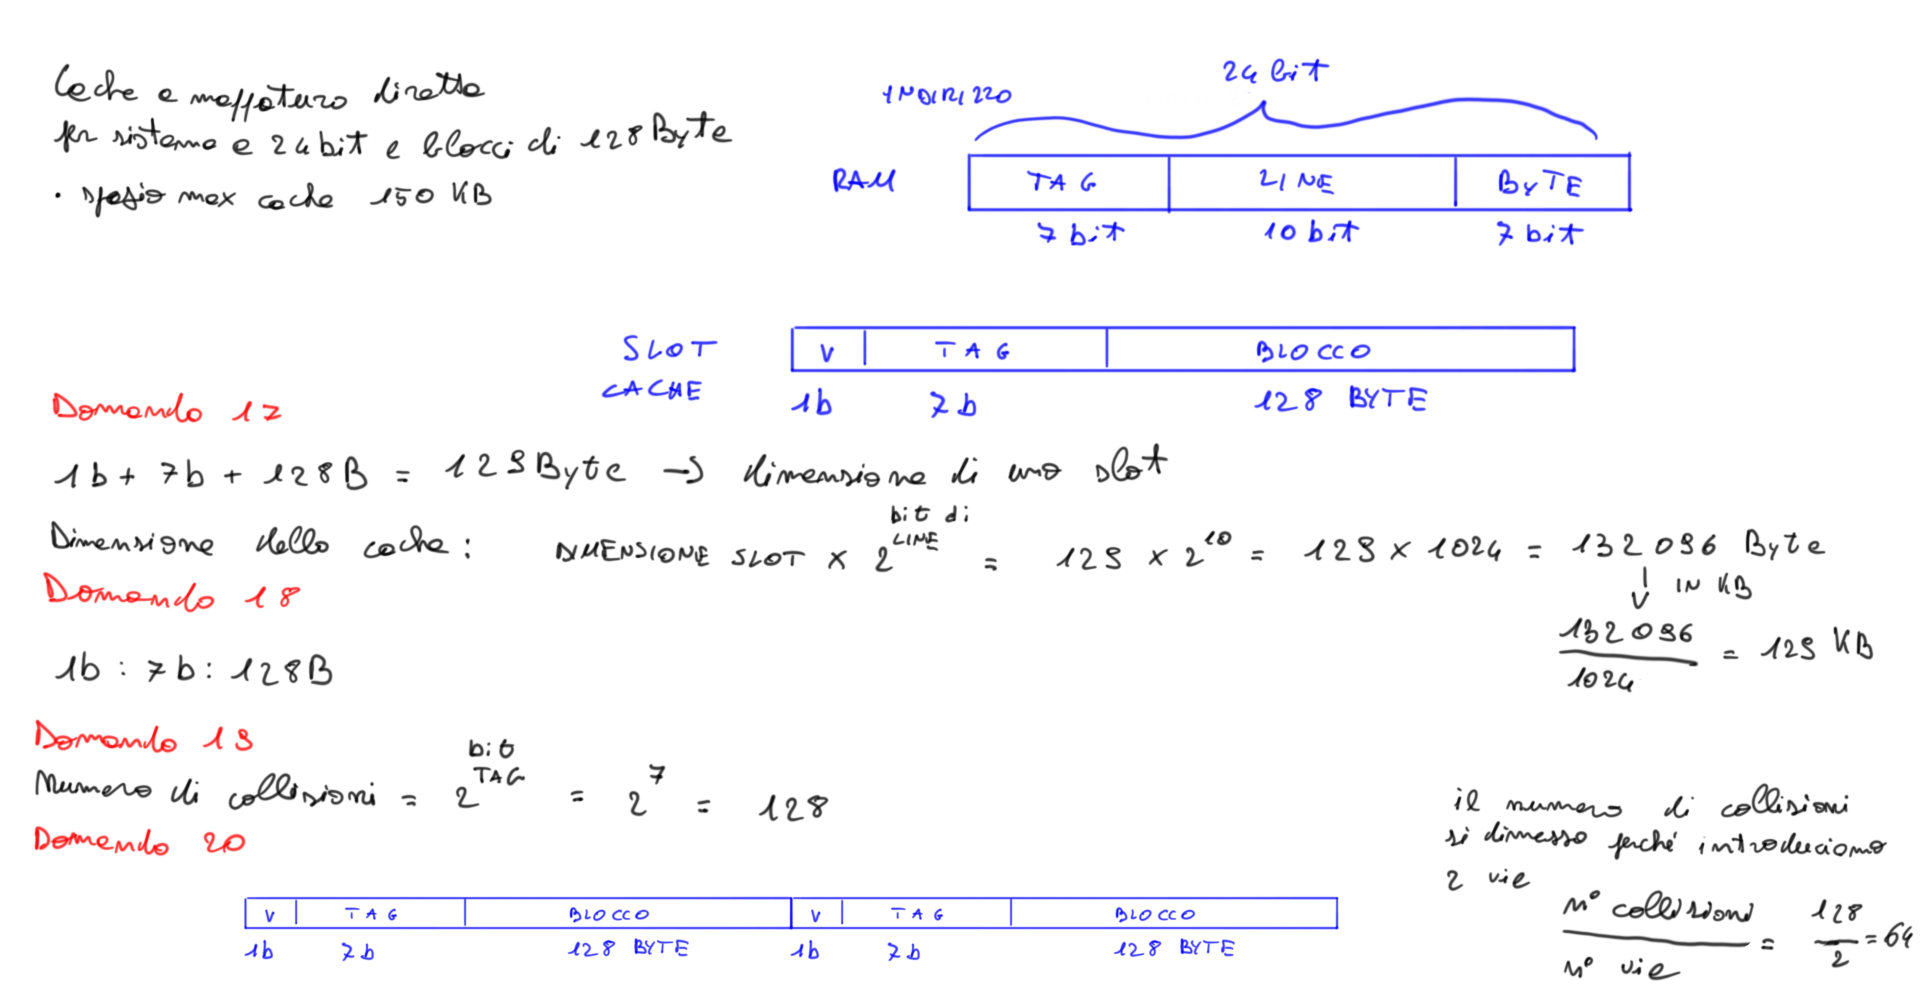 Cache a mappatura diretta
per sistema a 24 bit e blocci di 128 Byte
· spazio max cache 150 KB
INDIRIZZO
24 bit
RAM
TAG LINE BYTE
7 bit 10 bit 7 bit
SLOT CACHE
V TAG BLOCCO
1b 7b 128 BYTE
Domanda 17
1b + 7b + 128B = 129 Byte → dimensione di uno slot
Dimensione della cache: DIMENSIONE SLOT × 2^bit di LINE = 129 × 2^10 = 129 × 1024 = 132096 Byte
↓ IN KB
132096 / 1024 = 129 KB
Domanda 18
1b : 7b : 128B
Domanda 19
Numero di collisioni = 2^bit TAG = 2^7 = 128
Domanda 20
V TAG BLOCCO V TAG BLOCCO
1b 7b 128 BYTE 1b 7b 128 BYTE
il numero di collisioni
si dimezza perché introduciamo
2 vie
n° collisioni / n° vie = 128 / 2 = 64